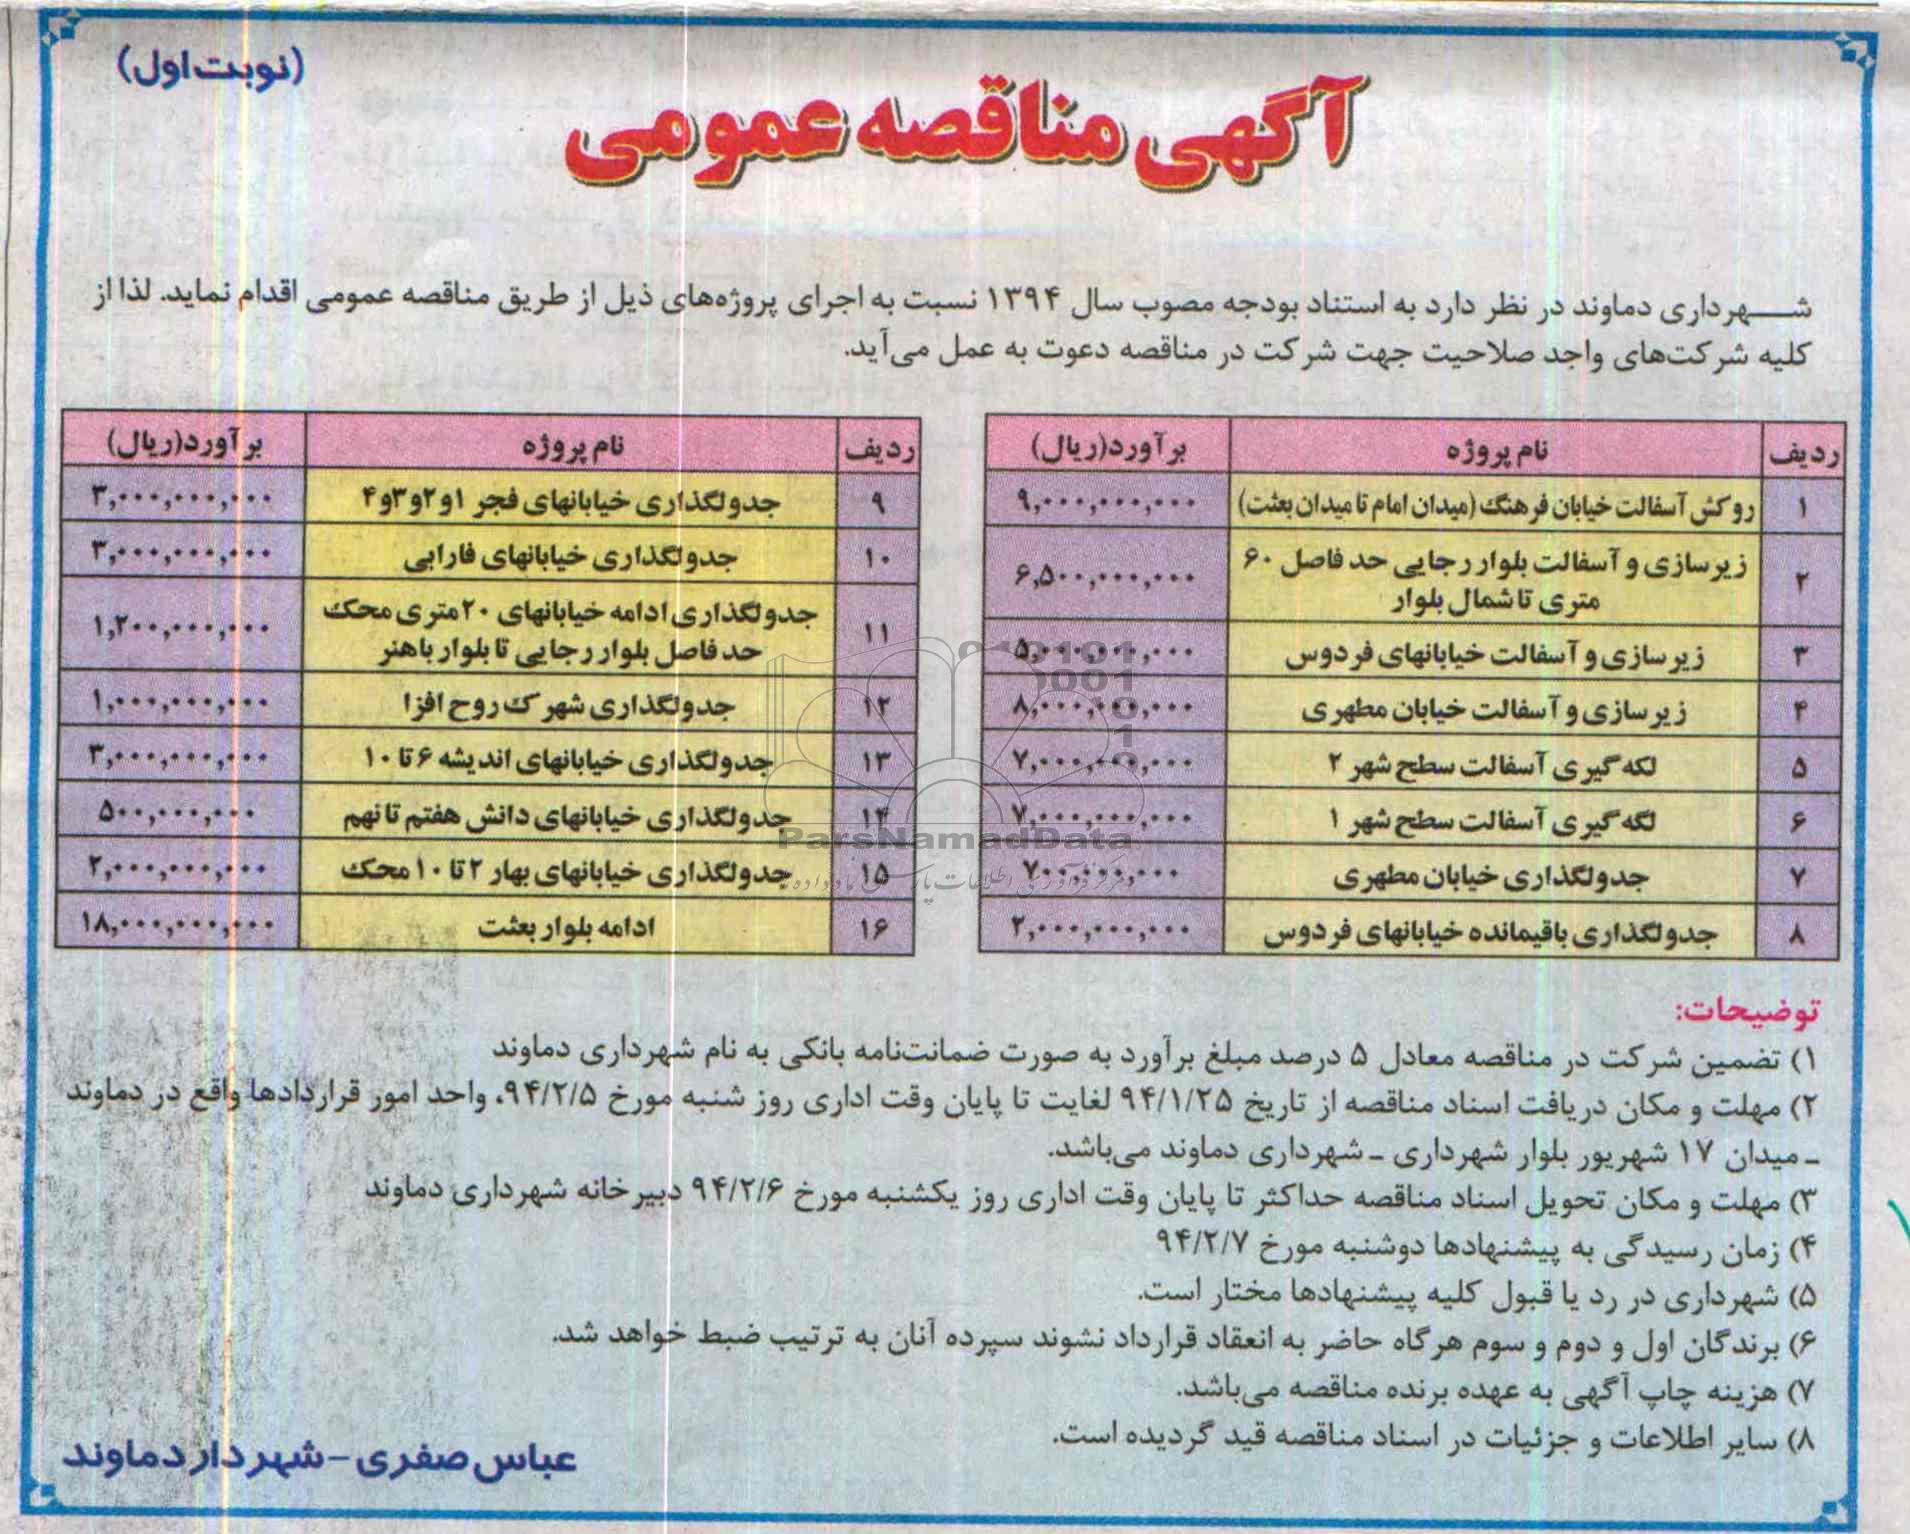 (نوبت اول)
آگهی مناقصه عمومی
شهرداری دماوند در نظر دارد به استناد بودجه مصوب سال ۱۳۹۴ نسبت به اجرای پروژه‌های ذیل از طریق مناقصه عمومی اقدام نماید. لذا از
کلیه شرکت‌های واجد صلاحیت جهت شرکت در مناقصه دعوت به عمل می‌آید.
ردیف نام پروژه برآورد(ریال)
۱ روکش آسفالت خیابان فرهنگ (میدان امام تا میدان بعثت) ۹,۰۰۰,۰۰۰,۰۰۰
۲ زیرسازی و آسفالت بلوار رجایی حد فاصل ۶۰
متری تا شمال بلوار ۶,۵۰۰,۰۰۰,۰۰۰
۳ زیرسازی و آسفالت خیابانهای فردوس ۵,۰۰۰,۰۰۰,۰۰۰
۴ زیرسازی و آسفالت خیابان مطهری ۸,۰۰۰,۰۰۰,۰۰۰
۵ لکه گیری آسفالت سطح شهر ۲ ۷,۰۰۰,۰۰۰,۰۰۰
۶ لگه گیری آسفالت سطح شهر ۱ ۷,۰۰۰,۰۰۰,۰۰۰
۷ جدولگذاری خیابان مطهری ۷۰۰,۰۰۰,۰۰۰
۸ جدولگذاری باقیمانده خیابانهای فردوس ۲,۰۰۰,۰۰۰,۰۰۰
ردیف نام پروژه برآورد(ریال)
۹ جدولگذاری خیابانهای فجر ۱و۲و۳و۴ ۳,۰۰۰,۰۰۰,۰۰۰
۱۰ جدولگذاری خیابانهای فارابی ۳,۰۰۰,۰۰۰,۰۰۰
۱۱ جدولگذاری ادامه خیابانهای ۲۰متری محک
حد فاصل بلوار رجایی تا بلوار باهنر ۱,۲۰۰,۰۰۰,۰۰۰
۱۲ جدولگذاری شهرک روح افزا ۱,۰۰۰,۰۰۰,۰۰۰
۱۳ جدولگذاری خیابانهای اندیشه ۶ تا ۱۰ ۳,۰۰۰,۰۰۰,۰۰۰
۱۴ جدولگذاری خیابانهای دانش هفتم تا نهم ۵۰۰,۰۰۰,۰۰۰
۱۵ جدولگذاری خیابانهای بهار ۲ تا ۱۰ محک ۲,۰۰۰,۰۰۰,۰۰۰
۱۶ ادامه بلوار بعثت ۱۸,۰۰۰,۰۰۰,۰۰۰
ParsNamadData
توضیحات:
۱) تضمین شرکت در مناقصه معادل ۵ درصد مبلغ برآورد به صورت ضمانت‌نامه بانکی به نام شهرداری دماوند
۲) مهلت و مکان دریافت اسناد مناقصه از تاریخ ۹۴/۱/۲۵ لغایت تا پایان وقت اداری روز شنبه مورخ ۹۴/۲/۵، واحد امور قراردادها واقع در دماوند
ـ میدان ۱۷ شهریور بلوار شهرداری ـ شهرداری دماوند می‌باشد.
۳) مهلت و مکان تحویل اسناد مناقصه حداکثر تا پایان وقت اداری روز یکشنبه مورخ ۹۴/۲/۶ دبیرخانه شهرداری دماوند
۴) زمان رسیدگی به پیشنهادها دوشنبه مورخ ۹۴/۲/۷
۵) شهرداری در رد یا قبول کلیه پیشنهادها مختار است.
۶) برندگان اول و دوم و سوم هرگاه حاضر به انعقاد قرارداد نشوند سپرده آنان به ترتیب ضبط خواهد شد.
۷) هزینه چاپ آگهی به عهده برنده مناقصه می‌باشد.
۸) سایر اطلاعات و جزئیات در اسناد مناقصه قید گردیده است.
عباس صفری - شهردار دماوند